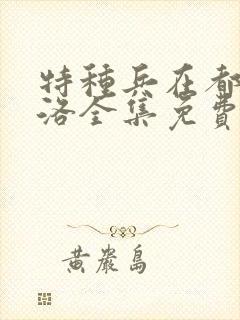 特種兵在都
洛全集免費
黃巖島